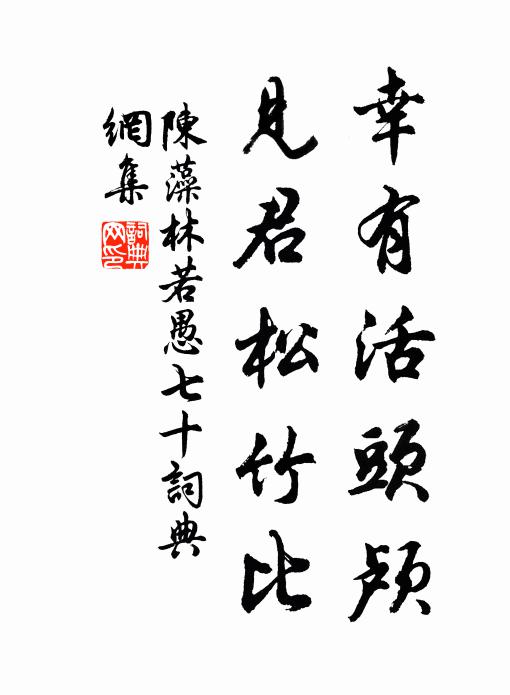 幸有活頭顱
見君松竹比
陳藻林若愚七十詞典
網集
詞典
网印